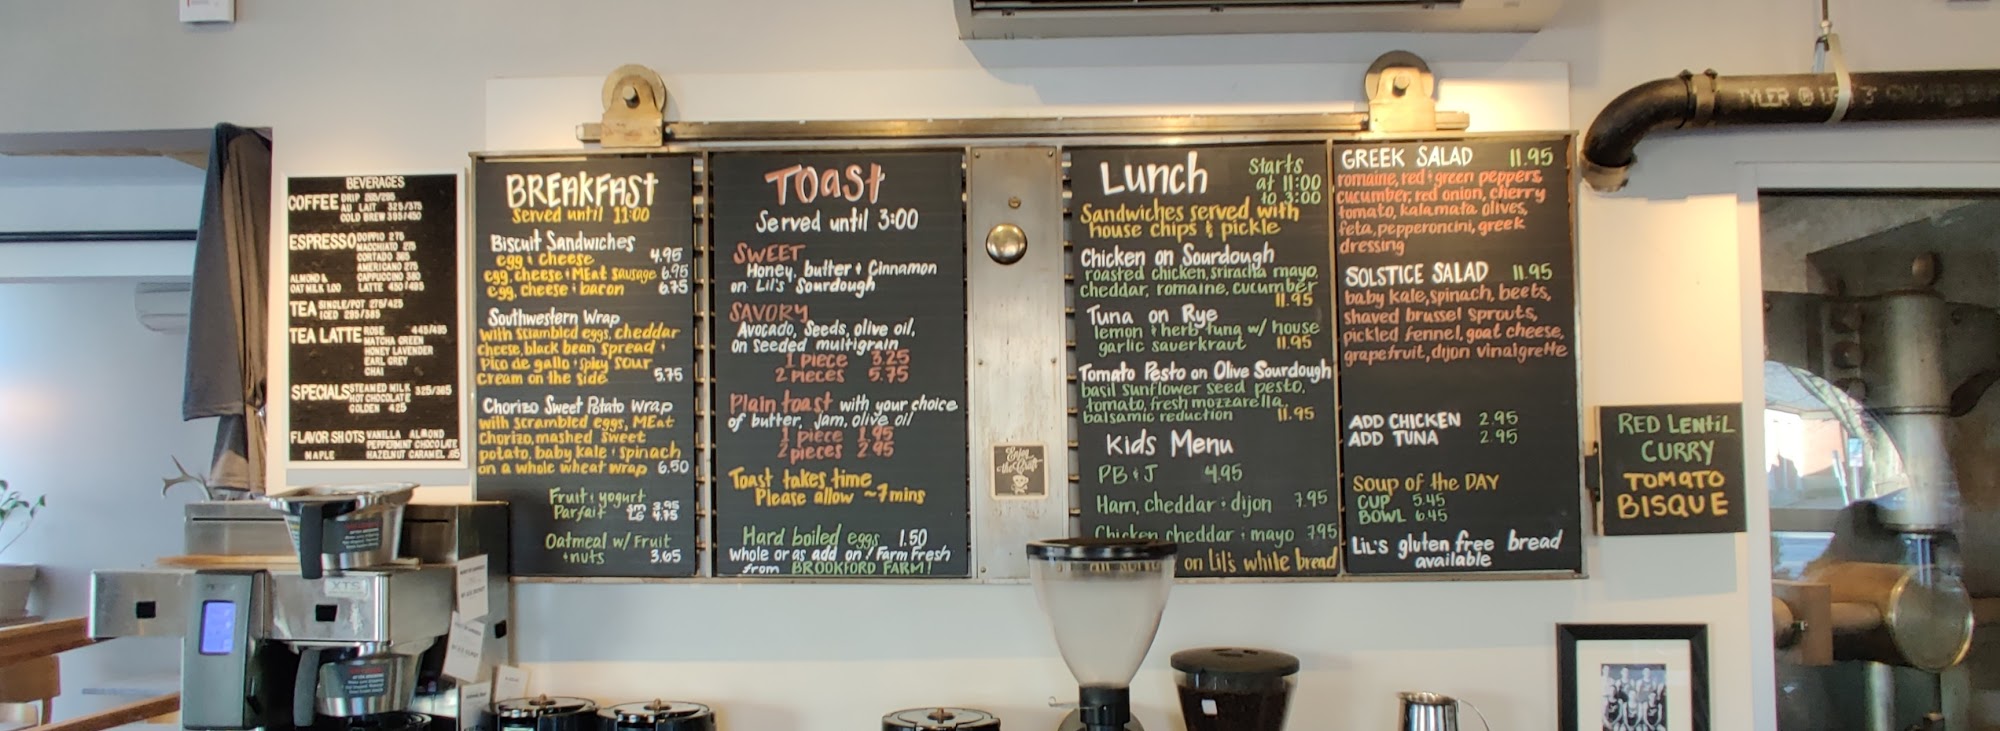 BEVERAGES
COFFEE DRIP 265/295
AU LAIT 325/375
COLD BREW 395/450
ESPRESSO DOPPIO 275
MACCHIATO 275
CORTADO 365
AMERICANO 275
CAPPUCCINO 380
ALMOND &
OAT MILK 1.00 LATTE 450/495
TEA SINGLE/POT 275/425
ICED 295/365
TEA LATTE ROSE 445/495
MATCHA GREEN
HONEY LAVENDER
EARL GREY
CHAI
SPECIALS STEAMED MILK 325/365
HOT CHOCOLATE
GOLDEN 425
FLAVOR SHOTS VANILLA ALMOND
PEPPERMINT CHOCOLATE
MAPLE HAZELNUT CARAMEL .85
BREAKFAST
Served until 11:00
Biscuit Sandwiches
egg + cheese 4.95
egg, cheese + MEat Sausage 6.95
egg, cheese + bacon 6.75
Southwestern Wrap
with scrambled eggs, cheddar
cheese, black bean spread +
Pico de gallo + spicy sour
cream on the side 5.75
Chorizo Sweet Potato Wrap
with scrambled eggs, MEat
Chorizo, mashed sweet
potato, baby kale + spinach
on a whole wheat wrap 6.50
Fruit + yogurt
Parfait sm 3.95
LG 4.75
Oatmeal w/ Fruit
+ nuts 3.65
TOast
Served until 3:00
SWEET
Honey, butter + Cinnamon
on Lil's Sourdough
SAVORY
Avocado, Seeds, olive oil,
on seeded multigrain
1 piece 3.25
2 pieces 5.75
Plain toast with your choice
of butter, jam, olive oil
1 piece 1.95
2 pieces 2.95
Toast takes time
Please allow ~7 mins
Hard boiled eggs 1.50
Whole or as add on! Farm Fresh
from BROOKFORD FARM!
Enjoy
the Craft
Lunch
Starts
at 11:00
to 3:00
Sandwiches served with
house chips & pickle
Chicken on Sourdough
roasted chicken, sriracha mayo,
cheddar, romaine, cucumber
11.95
Tuna on Rye
lemon + herb tuna w/ house
garlic sauerkraut 11.95
Tomato Pesto on Olive Sourdough
basil sunflower seed pesto,
tomato, fresh mozzarella,
balsamic reduction 11.95
Kids Menu
PB + J 4.95
Ham, cheddar + dijon 7.95
Chicken cheddar + mayo 7.95
on Lil's white bread
GREEK SALAD 11.95
romaine, red + green peppers,
cucumber, red onion, cherry
tomato, kalamata olives,
feta, pepperoncini, greek
dressing
SOLSTICE SALAD 11.95
baby kale, spinach, beets,
shaved brussel sprouts,
pickled fennel, goat cheese,
grapefruit, dijon vinaigrette
ADD CHICKEN 2.95
ADD TUNA 2.95
Soup of the DAY
CUP 5.45
BOWL 6.45
LiL's gluten free bread
available
RED LENTiL
CURRY
TOMATO
BISQUE
TYLER
XTS